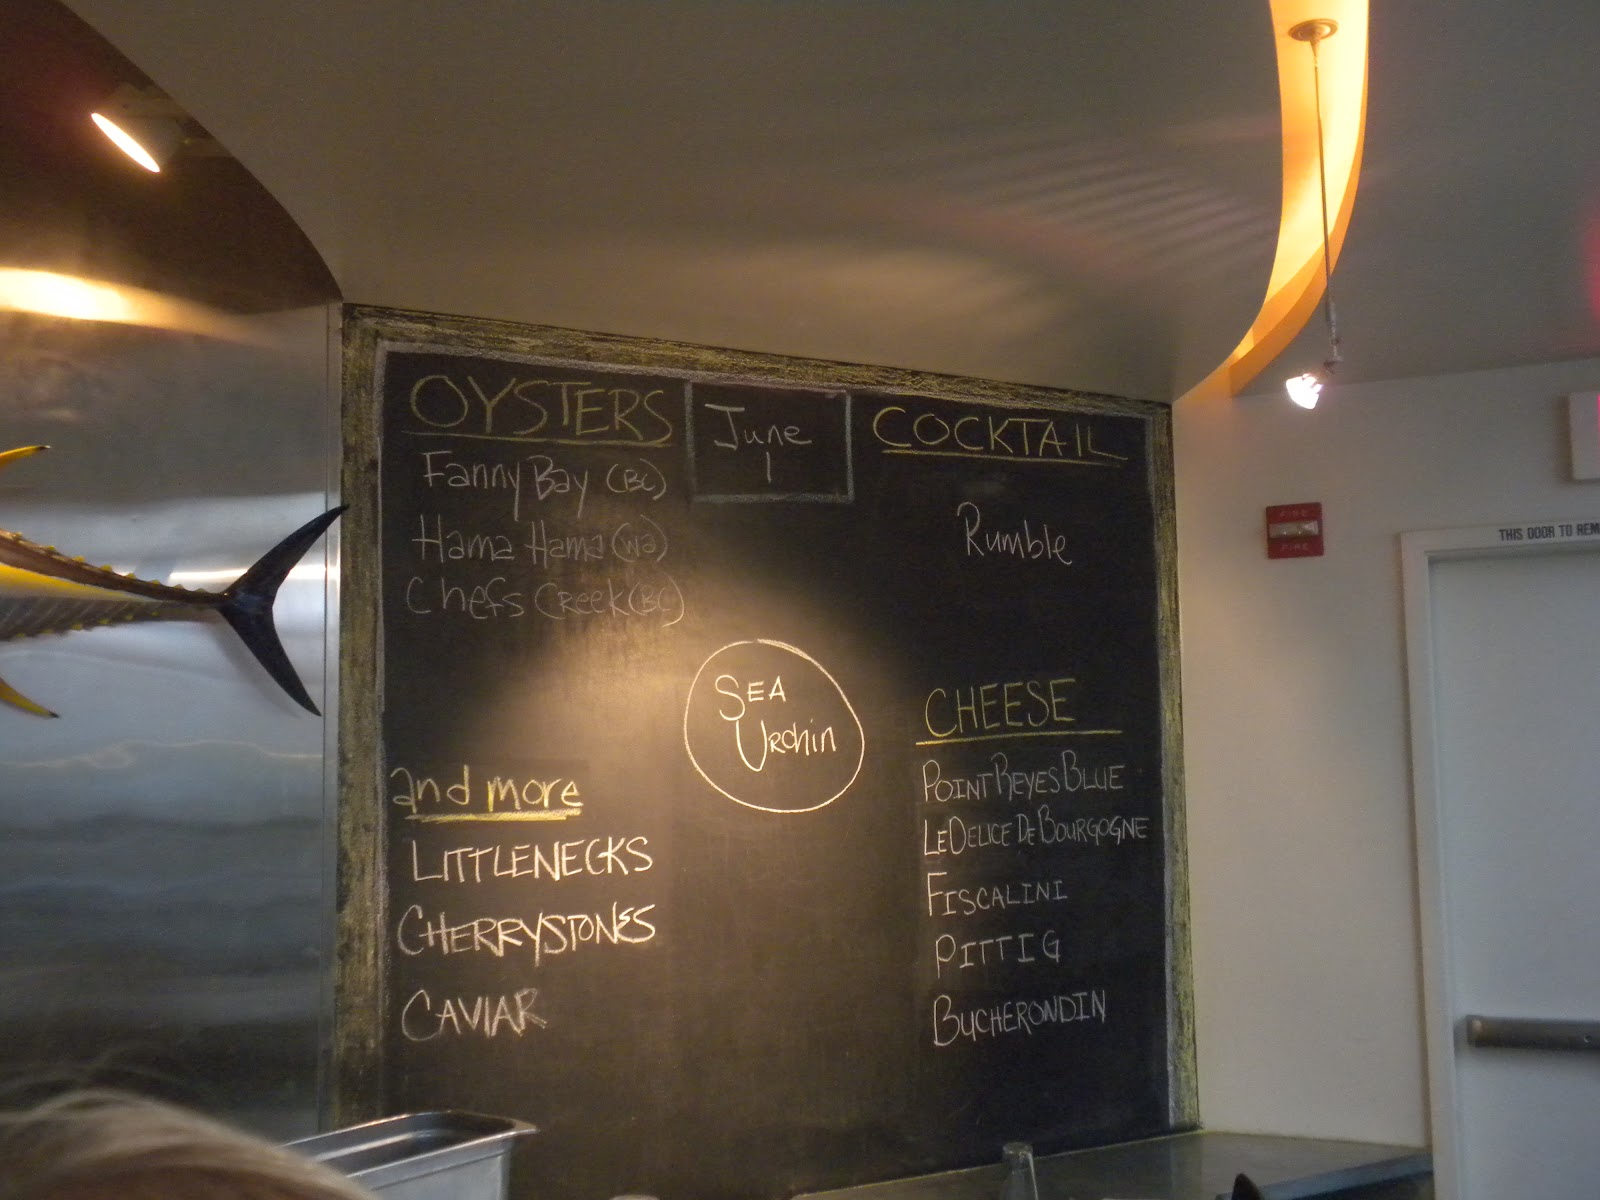 OYSTERS
Fanny Bay (BC)
Hama Hama (Wa)
Chefs Creek (BC)
June
1
COCKTAIL
Rumble
SEA
URchin
CHEESE
POINT REYES BLUE
LE DELICE DE BOURGOGNE
FISCALINI
PITTIG
BUCHERONDIN
and more
LITTLENECKS
CHERRYSTONES
CAVIAR
FIRE
FIRE
THIS DOOR TO REM